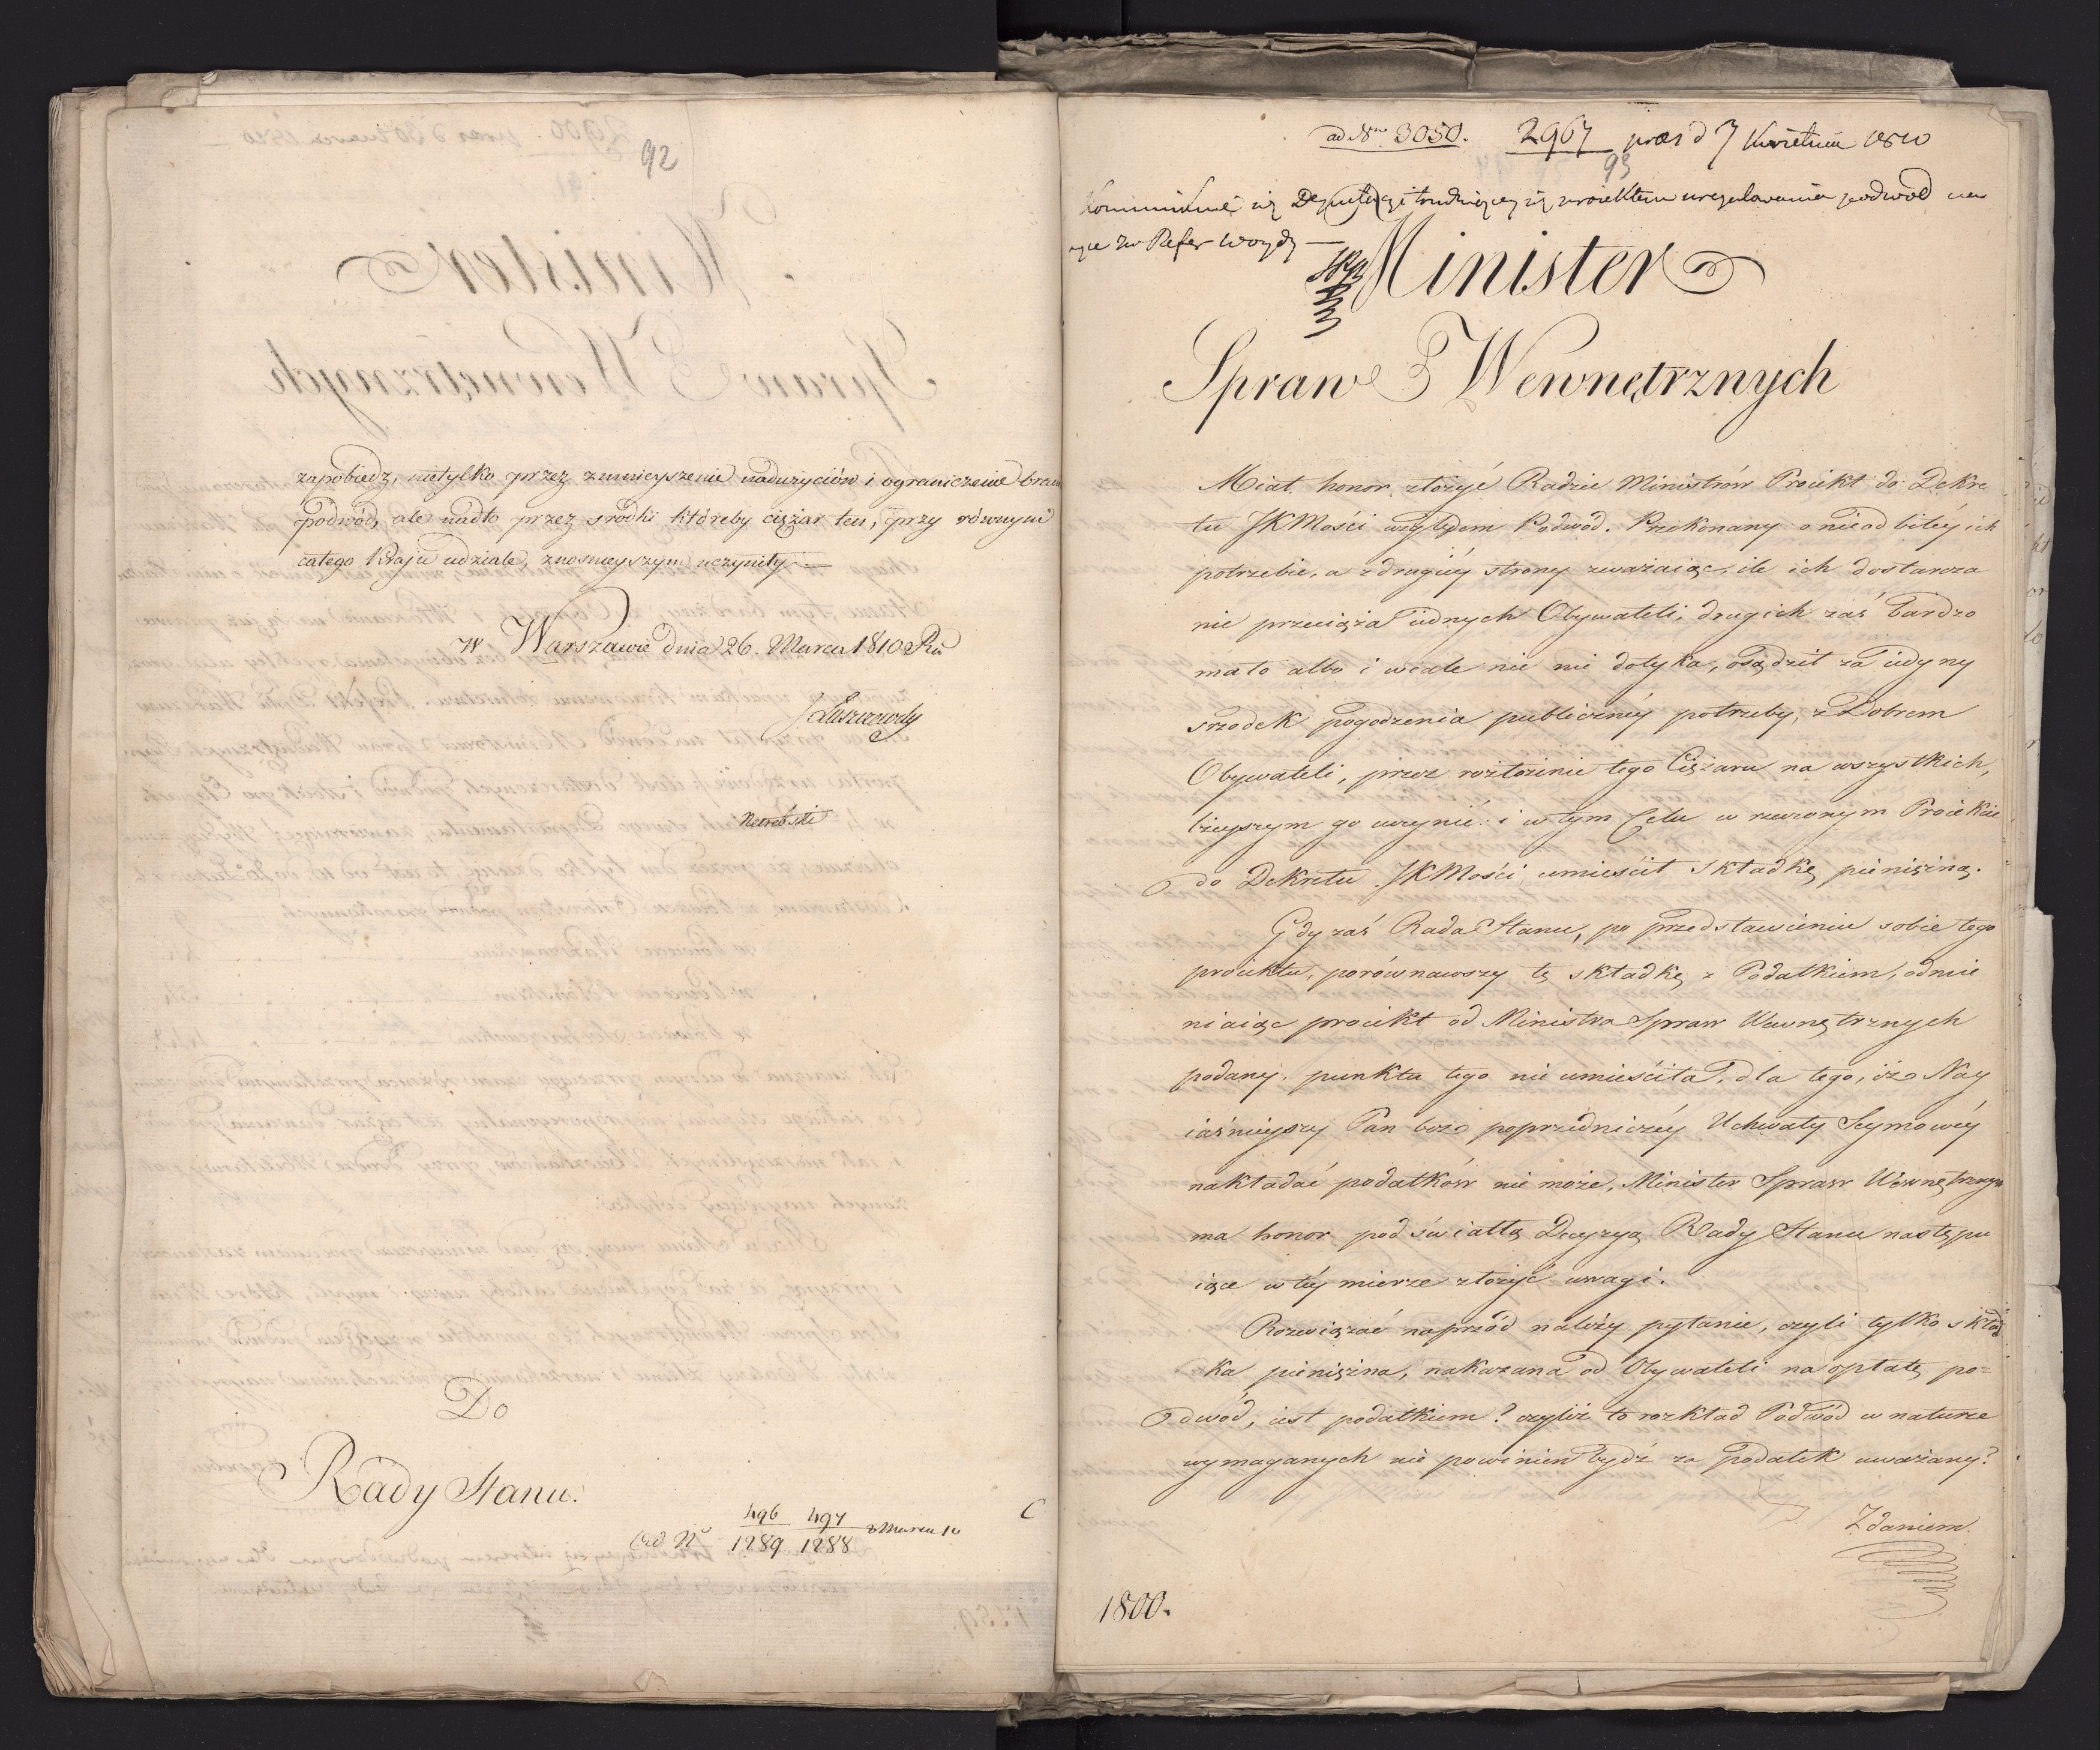 92
zapobiedz, nietylko przez zmnieyszenie nadużyciów i ograniczenie bra
podwód, ale nadto przez srodki któreby ciężar ten, przy równym
całego Kraju udziale, znosnieyszym uczyniły.
W Warszawie dnia 26. Marca 1810 Ru
J Łuszczewsky
Do
Rady Stanu.
ad No 496 497 8 Marca 10
1289 1288
ad Nrm 3050. 2967 praes d 7 Kwietnia 1810
93
Deputacyi trudniącey się proiektem uregulowania podwód na
ręce Refer Woydy
Minister
Spraw Wewnętrznych
Miał honor złożyć Radzie Ministrów Proiekt do Dekre
tu JKMości względem Podwod. Przekonany o nieodbitéy ich
potrzebie, a z drugiéy strony zważaiąc, ile ich dostarcza
nie przeciąża iednych Obywateli, drugich zaś bardzo
mało albo i wcale nie nie dotyka, osądził za iedyny
srzodek pogodzenia publicznéy potrzeby, z Dobrem
Obywateli, przez rozłożenie tego Ciężaru na wszystkich,
lżeyszym go uczynić: i w tym Celu w rzeczonym Proiekcie
do Dekretu JKMości umieścił składkę pieniężną.
Gdy zaś Rada Stanu, po przedstawieniu sobie tego
proiektu, porównawszy tę składkę z Podatkiem, odmie
niaiąc proiekt od Ministra Spraw Wewnętrznych
podany, punktu tego nie umieściła, dla tego, iże Nay
iaśnieyszy Pan bez poprzedniczéy Uchwały Seymowéy
nakładać podatków nie może, Minister Spraw Wewnętrznych
ma honor pod światłą Decyzyą Rady Stanu następu
iące w téy mierze złożyć uwagi.
Rozwiązać naprzód należy pytanie, czyli tylko skład
ka pieniężna, nakazana od Obywateli na opłatę po=
dwód, iest podatkiem? czyliż to rozkład Podwód w naturze
wymaganych nie powinien bydź za podatek uważany?
Zdaniem
1800.